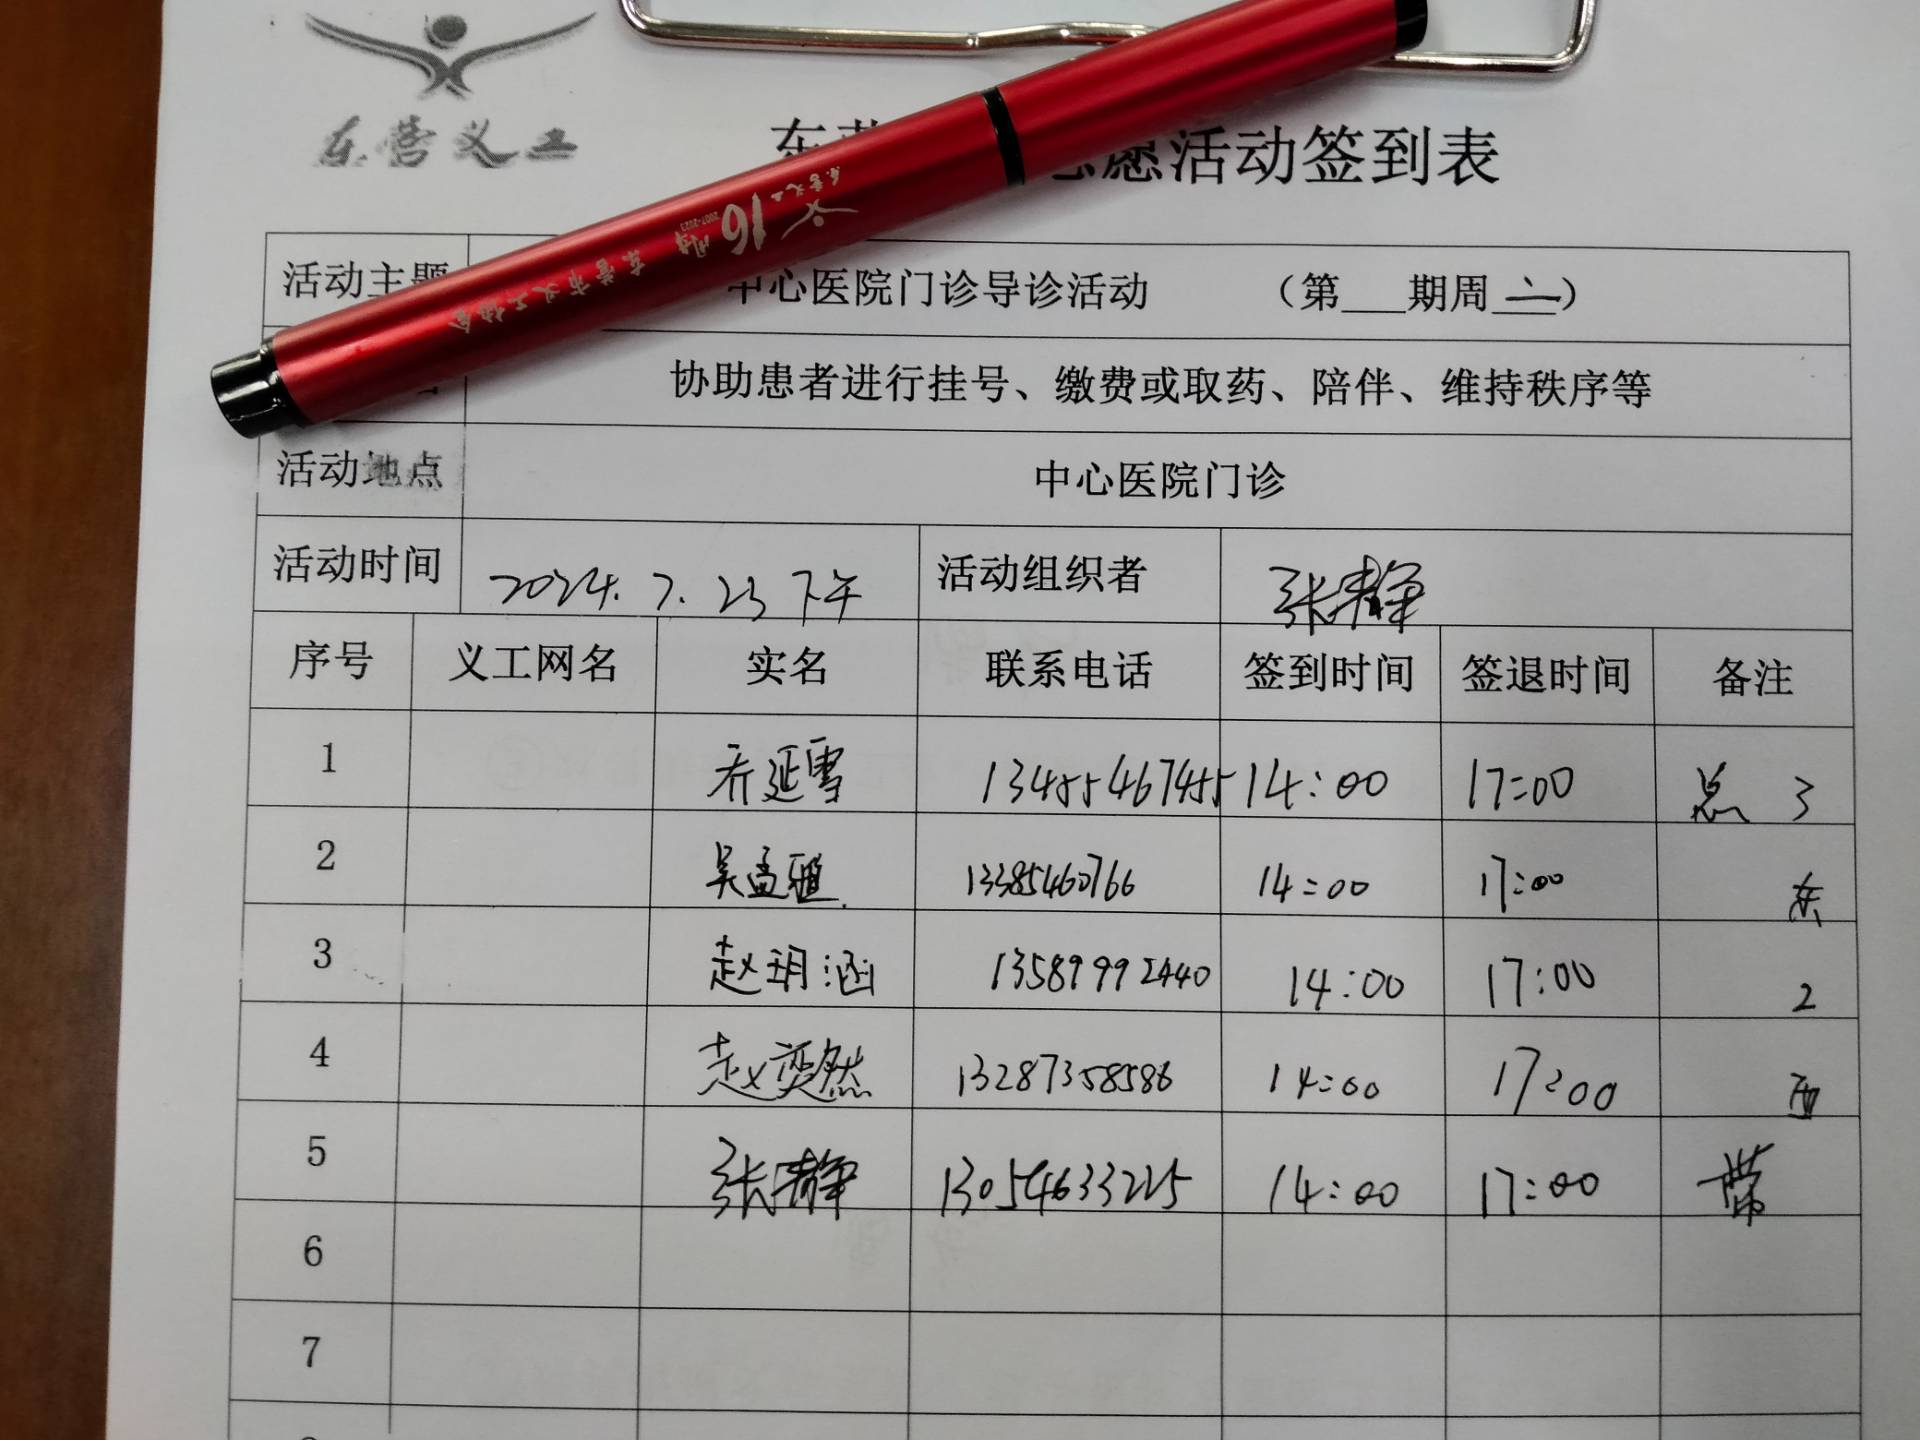 东营义工
志愿活动签到表
东营义工
16周年
2007-2023
东营市义工协会
活动主题 中心医院门诊导诊活动 （第___期周二）
协助患者进行挂号、缴费或取药、陪伴、维持秩序等
活动地点 中心医院门诊
活动时间 2024.7.23下午 活动组织者 张静
序号 义工网名 实名 联系电话 签到时间 签退时间 备注
1 乔延雪 13455467455 14:00 17:00 总 3
2 吴孟雅 13385460766 14:00 17:00 东
3 赵玥涵 13589992440 14:00 17:00 2
4 赵奕然 13287358586 14:00 17:00 西
5 张静 13054633225 14:00 17:00 带
6
7